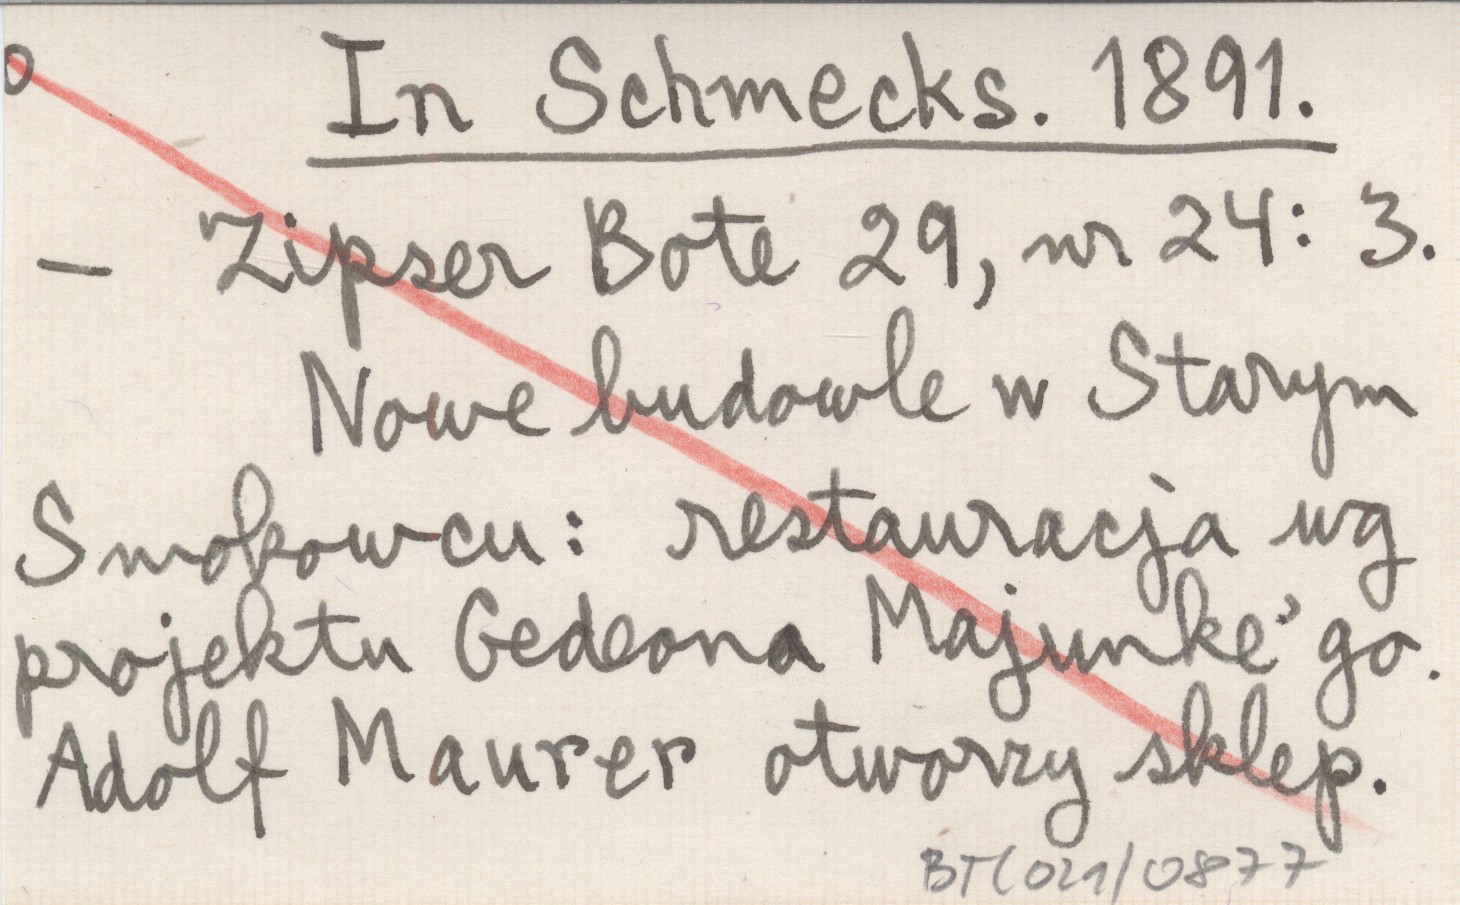 o
In Schmecks. 1891.
— Zipser Bote 29, nr 24: 3.
Nowe budowle w Starym
Smokowcu: restauracja wg
projektu Gedeona Majunke'go.
Adolf Maurer otworzy sklep.
BT(021/0877